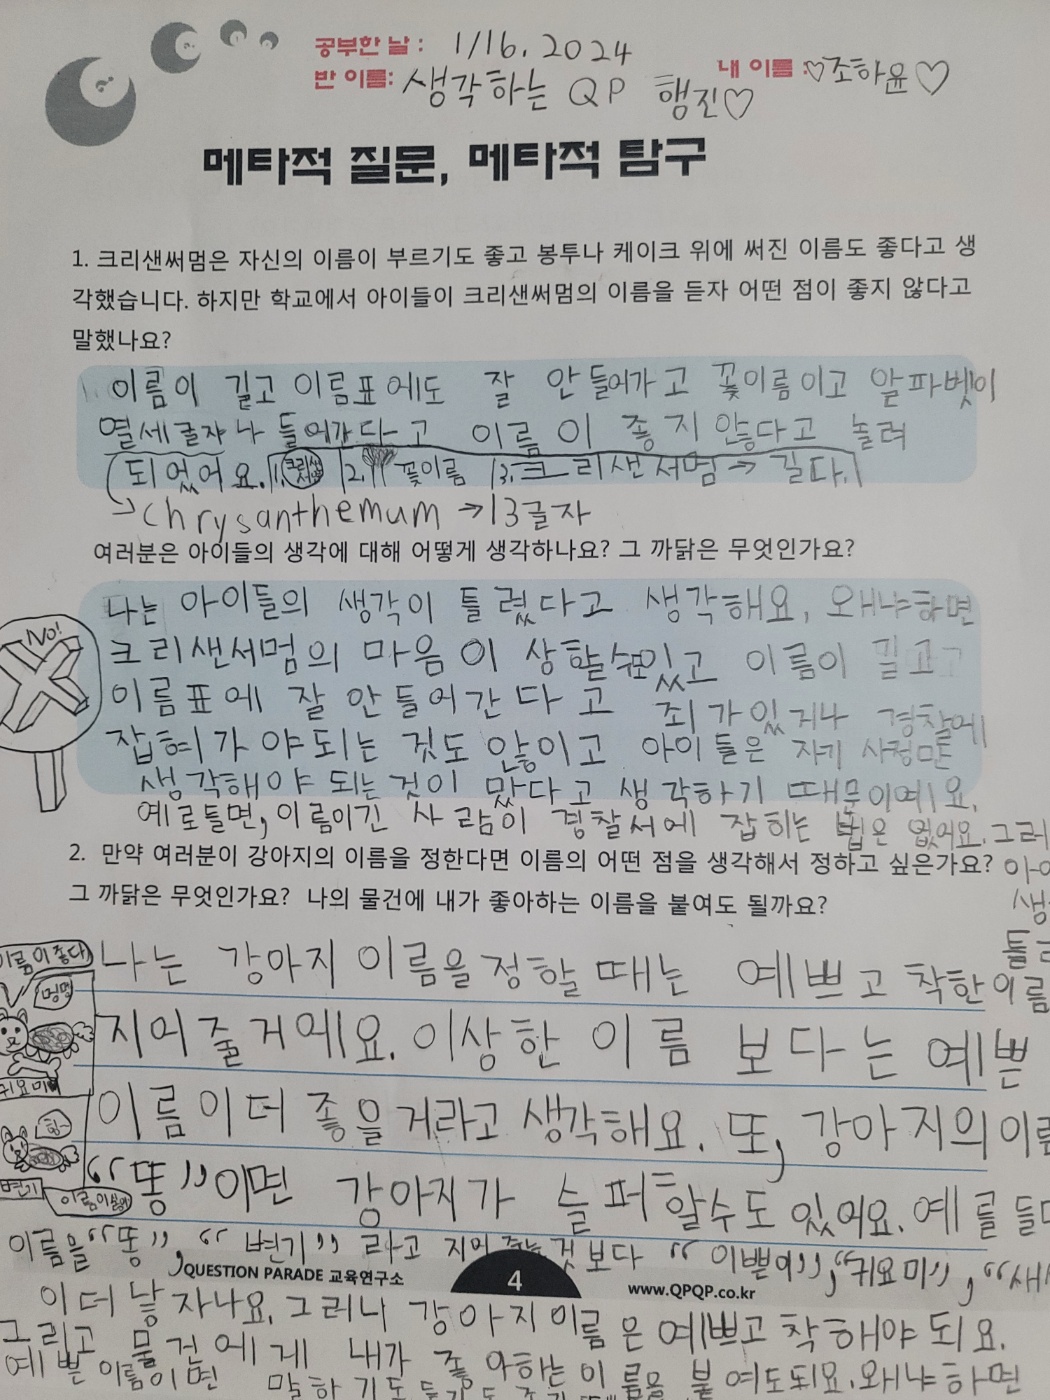 공부한 날 : 1/16. 2024
반 이름: 생각하는 QP 햄진♡
내 이름 :♡조하윤♡
메타적 질문, 메타적 탐구
1. 크리샌써멈은 자신의 이름이 부르기도 좋고 봉투나 케이크 위에 써진 이름도 좋다고 생
각했습니다. 하지만 학교에서 아이들이 크리샌써멈의 이름을 듣자 어떤 점이 좋지 않다고
말했나요?
이름이 길고 이름표에도 잘 안들어가고 꽃이름이고 알파벳이
열세글자나 들어간다고 이름이 좋지 않다고 놀려
되었어요. 1. 크리샌서멈 2. 꽃이름 3. 크리샌서멈 → 길다.
→ chrysanthemum → 13글자
여러분은 아이들의 생각에 대해 어떻게 생각하나요? 그 까닭은 무엇인가요?
나는 아이들의 생각이 틀렸다고 생각해요, 왜냐하면
No!
크리샌서멈의 마음이 상할수도있고 이름이 길고
이름표에 잘 안들어간다고 죄가있거나 경찰에
잡혀가야되는 것도 않이고 아이들은 자기 사정만
생각해야 되는것이 맞다고 생각하기 때문이에요.
예로들면, 이름이긴 사람이 경찰서에 잡히는 법은 없어요. 그러
2. 만약 여러분이 강아지의 이름을 정한다면 이름의 어떤 점을 생각해서 정하고 싶은가요?
그 까닭은 무엇인가요? 나의 물건에 내가 좋아하는 이름을 붙여도 될까요?
이름이좋다
멍멍
귀요미
변기
나는 강아지 이름을 정할 때는 예쁘고 착한 이름
지어줄거에요. 이상한 이름 보다는 예쁜
이름이더 좋을거라고 생각해요. 또, 강아지의 이름
“똥”이면 강아지가 슬퍼할수도 있어요. 예를들
이름을“똥”, “변기” 라고 지어주는것 보다 “이쁜이”, “귀요미”,
QUESTION PARADE 교육연구소
4
www.QPQP.co.kr
이 더 낳자나요. 그러니 강아지 이름은 예쁘고 착해야 되요.
그리고 물건에게 내가 좋아하는 이름을 붙여도되요. 왜냐하면
예쁜이름이면